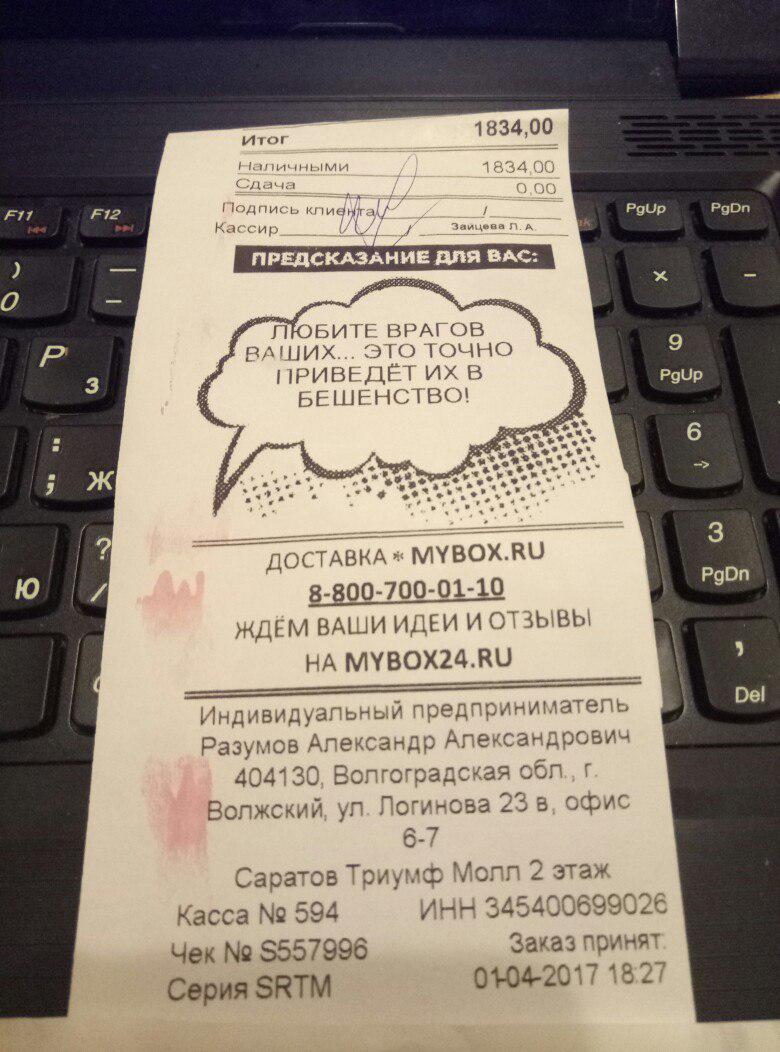 Итог 1834,00
Наличными 1834,00
Сдача 0,00
Подпись клиента /
Кассир / Зайцева Л. А.
ПРЕДСКАЗАНИЕ ДЛЯ ВАС:
ЛЮБИТЕ ВРАГОВ
ВАШИХ... ЭТО ТОЧНО
ПРИВЕДЁТ ИХ В
БЕШЕНСТВО!
ДОСТАВКА * MYBOX.RU
8-800-700-01-10
ЖДЁМ ВАШИ ИДЕИ И ОТЗЫВЫ
НА MYBOX24.RU
Индивидуальный предприниматель
Разумов Александр Александрович
404130, Волгоградская обл., г.
Волжский, ул. Логинова 23 в, офис
6-7
Саратов Триумф Молл 2 этаж
Касса № 594 ИНН 345400699026
Чек № S557996 Заказ принят:
Серия SRTM 01-04-2017 18:27
F11 F12 PgUp PgDn
) 0 — – × -
Р З 9 PgUp
: ; Ж 6 ->
Ю ? / 3 PgDn
, Del